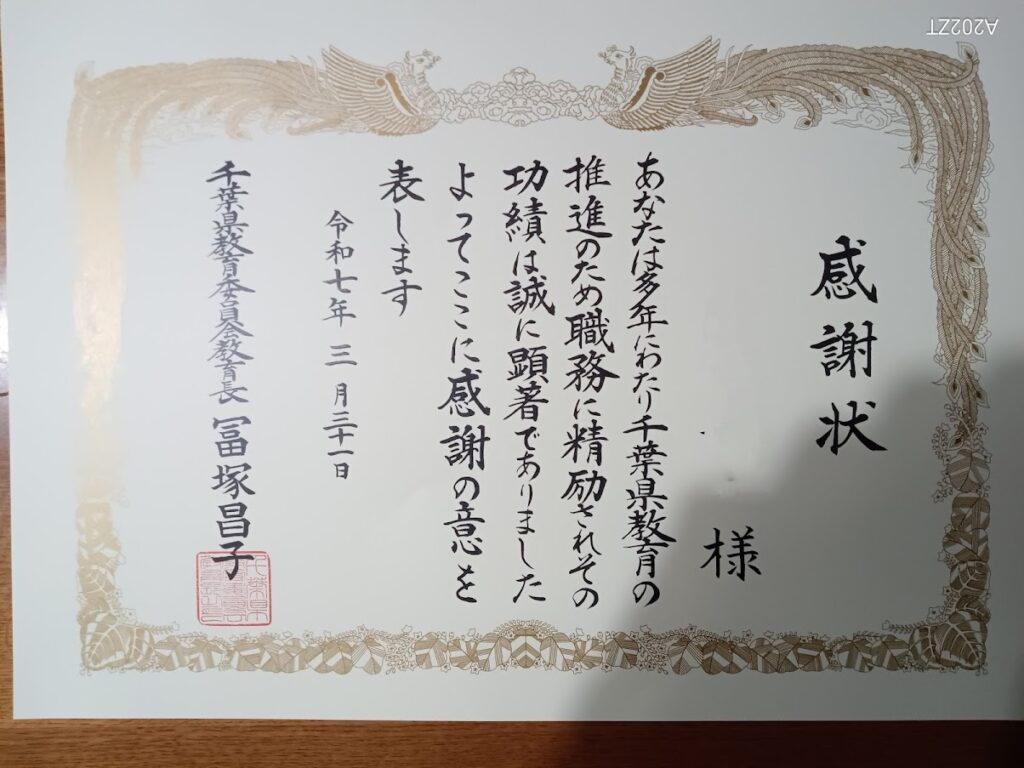 感謝状
様
あなたは多年にわたり千葉県教育の
推進のため職務に精励されその
功績は誠に顕著でありました
よってここに感謝の意を
表します
令和七年 三 月三十一日
千葉県教育委員会教育長 冨塚昌子
A202ZT